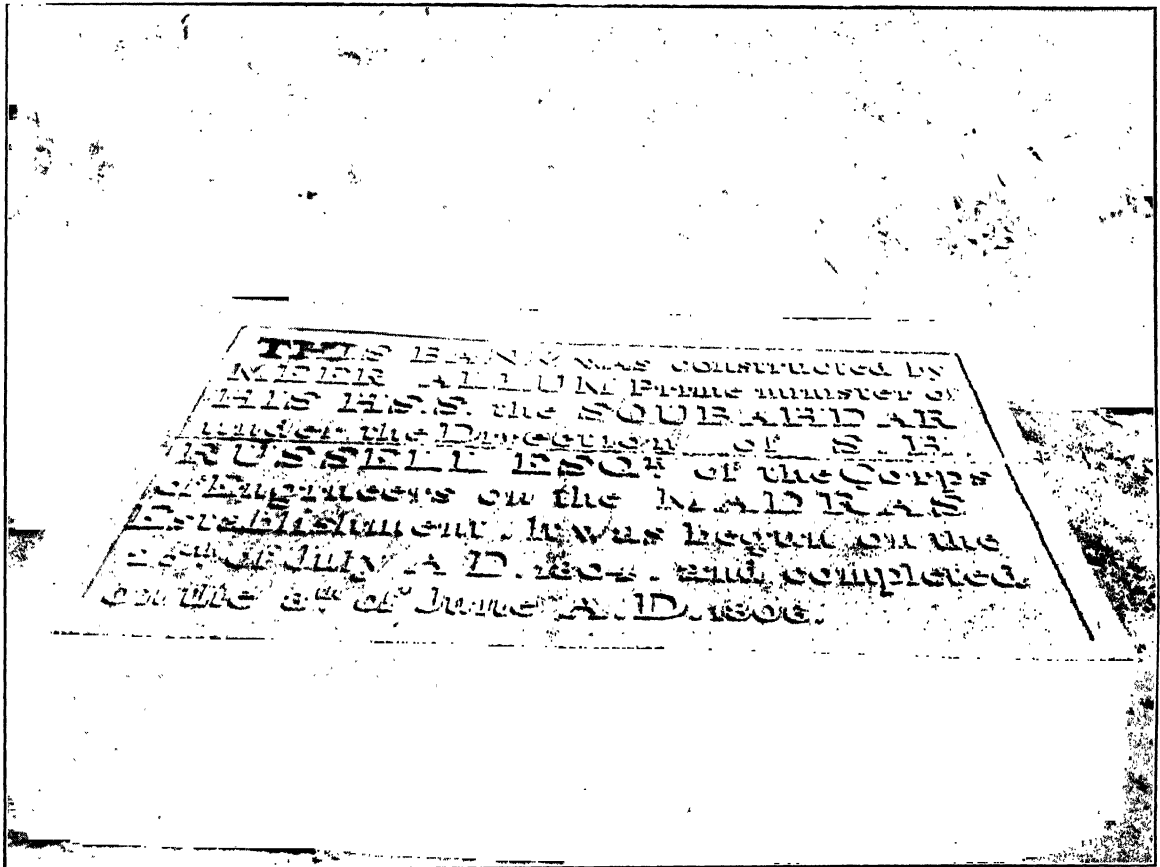 THIS BANK was constructed by
MEER ALLUM Prime minister of
HIS HS.S. the SOUBAHDAR
under the Direction of S. H.
RUSSELL ESQR of the Corps
of Engineers on the MADRAS
Establishment. It was begun on the
of July A D. 1804. and completed
on the 8th of June A.D. 1806.